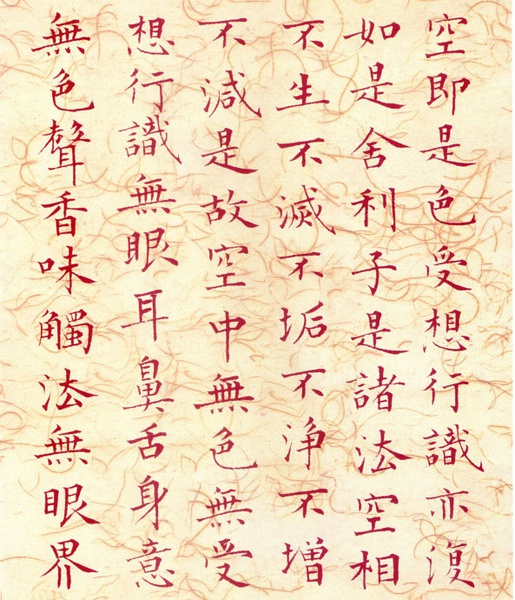 空即是色受想行識亦復
如是舍利子是諸法空相
不生不滅不垢不浄不増
不減是故空中無色無受
想行識無眼耳鼻舌身意
無色聲香味觸法無眼界